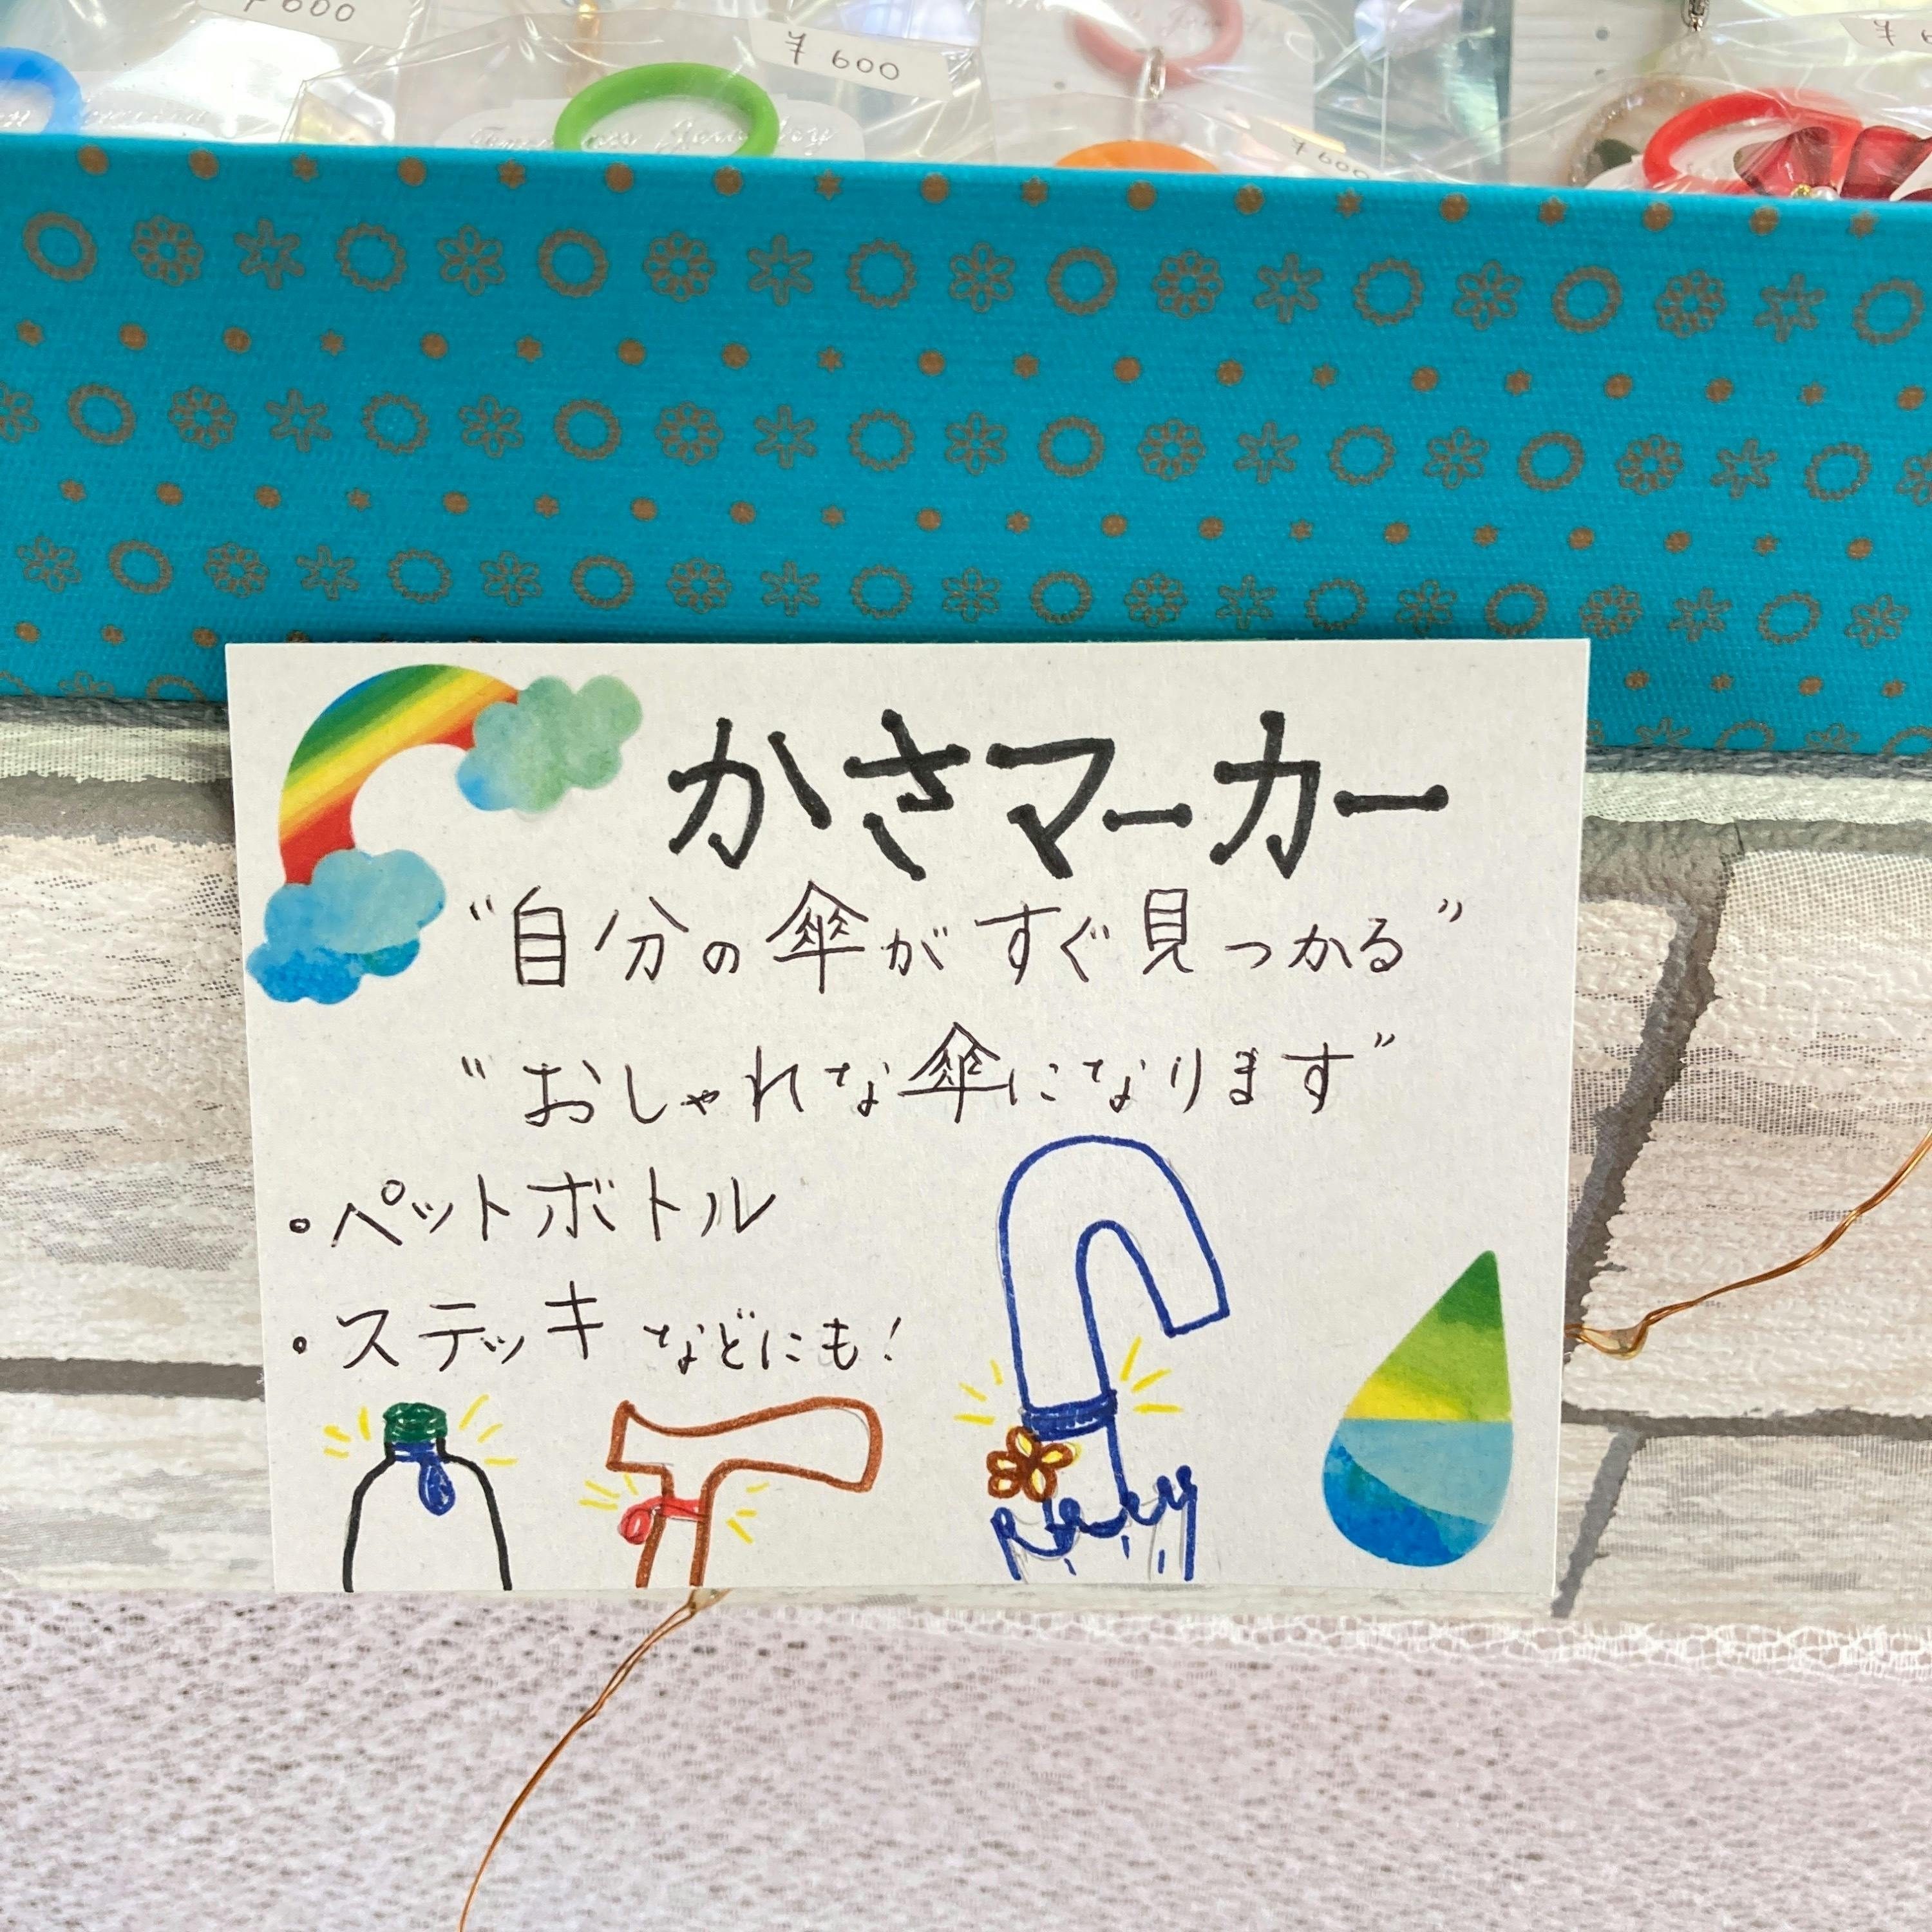 ¥600
¥600
¥600
かさマーカー
“自分の傘がすぐ見つかる”
“おしゃれな傘になります”
・ペットボトル
・ステッキなどにも!